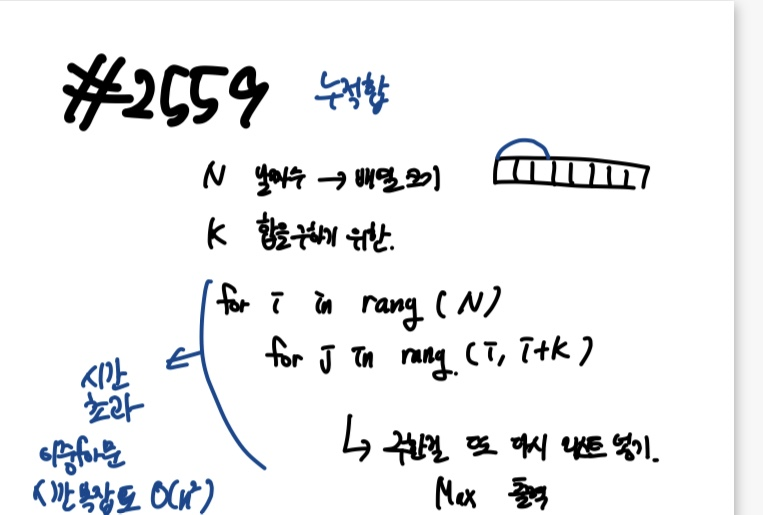 #2559 누적합
N 날짜수 → 배열크기
K 합을구하기 위한.
for i in rang (N)
for J in rang. (i, i+K)
시간
초과
이중for문
시간복잡도 O(n²)
↳ 구한걸 또 다시 리스트 넣기.
Max 출력